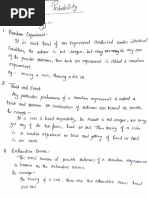 Probability
1. Random Experiment:-
If in each trial of an experiment conducted under identical
conditions, the outcome is not unique, but may be any one
of the possible outcomes, then such an experiment is called a random
experiment.
Eg:- tossing a coin, throwing a die etc.
2. Trial and Event:
Any particular performance of a random experiment is called a
trial and outcome or combination of outcomes are termed as events.
Example:-
If a coin is tossed repeatedly, the result is not unique. We may
get any of the two faces, head or tail. Thus tossing of a coin
is a random experiment or trial and getting of head or tail
is an event.
3. Exhaustive Events:-
The total number of possible outcomes of a random experiment
is known as the exhaustive events.
Example:-
In tossing of a coin, there are two exhaustive